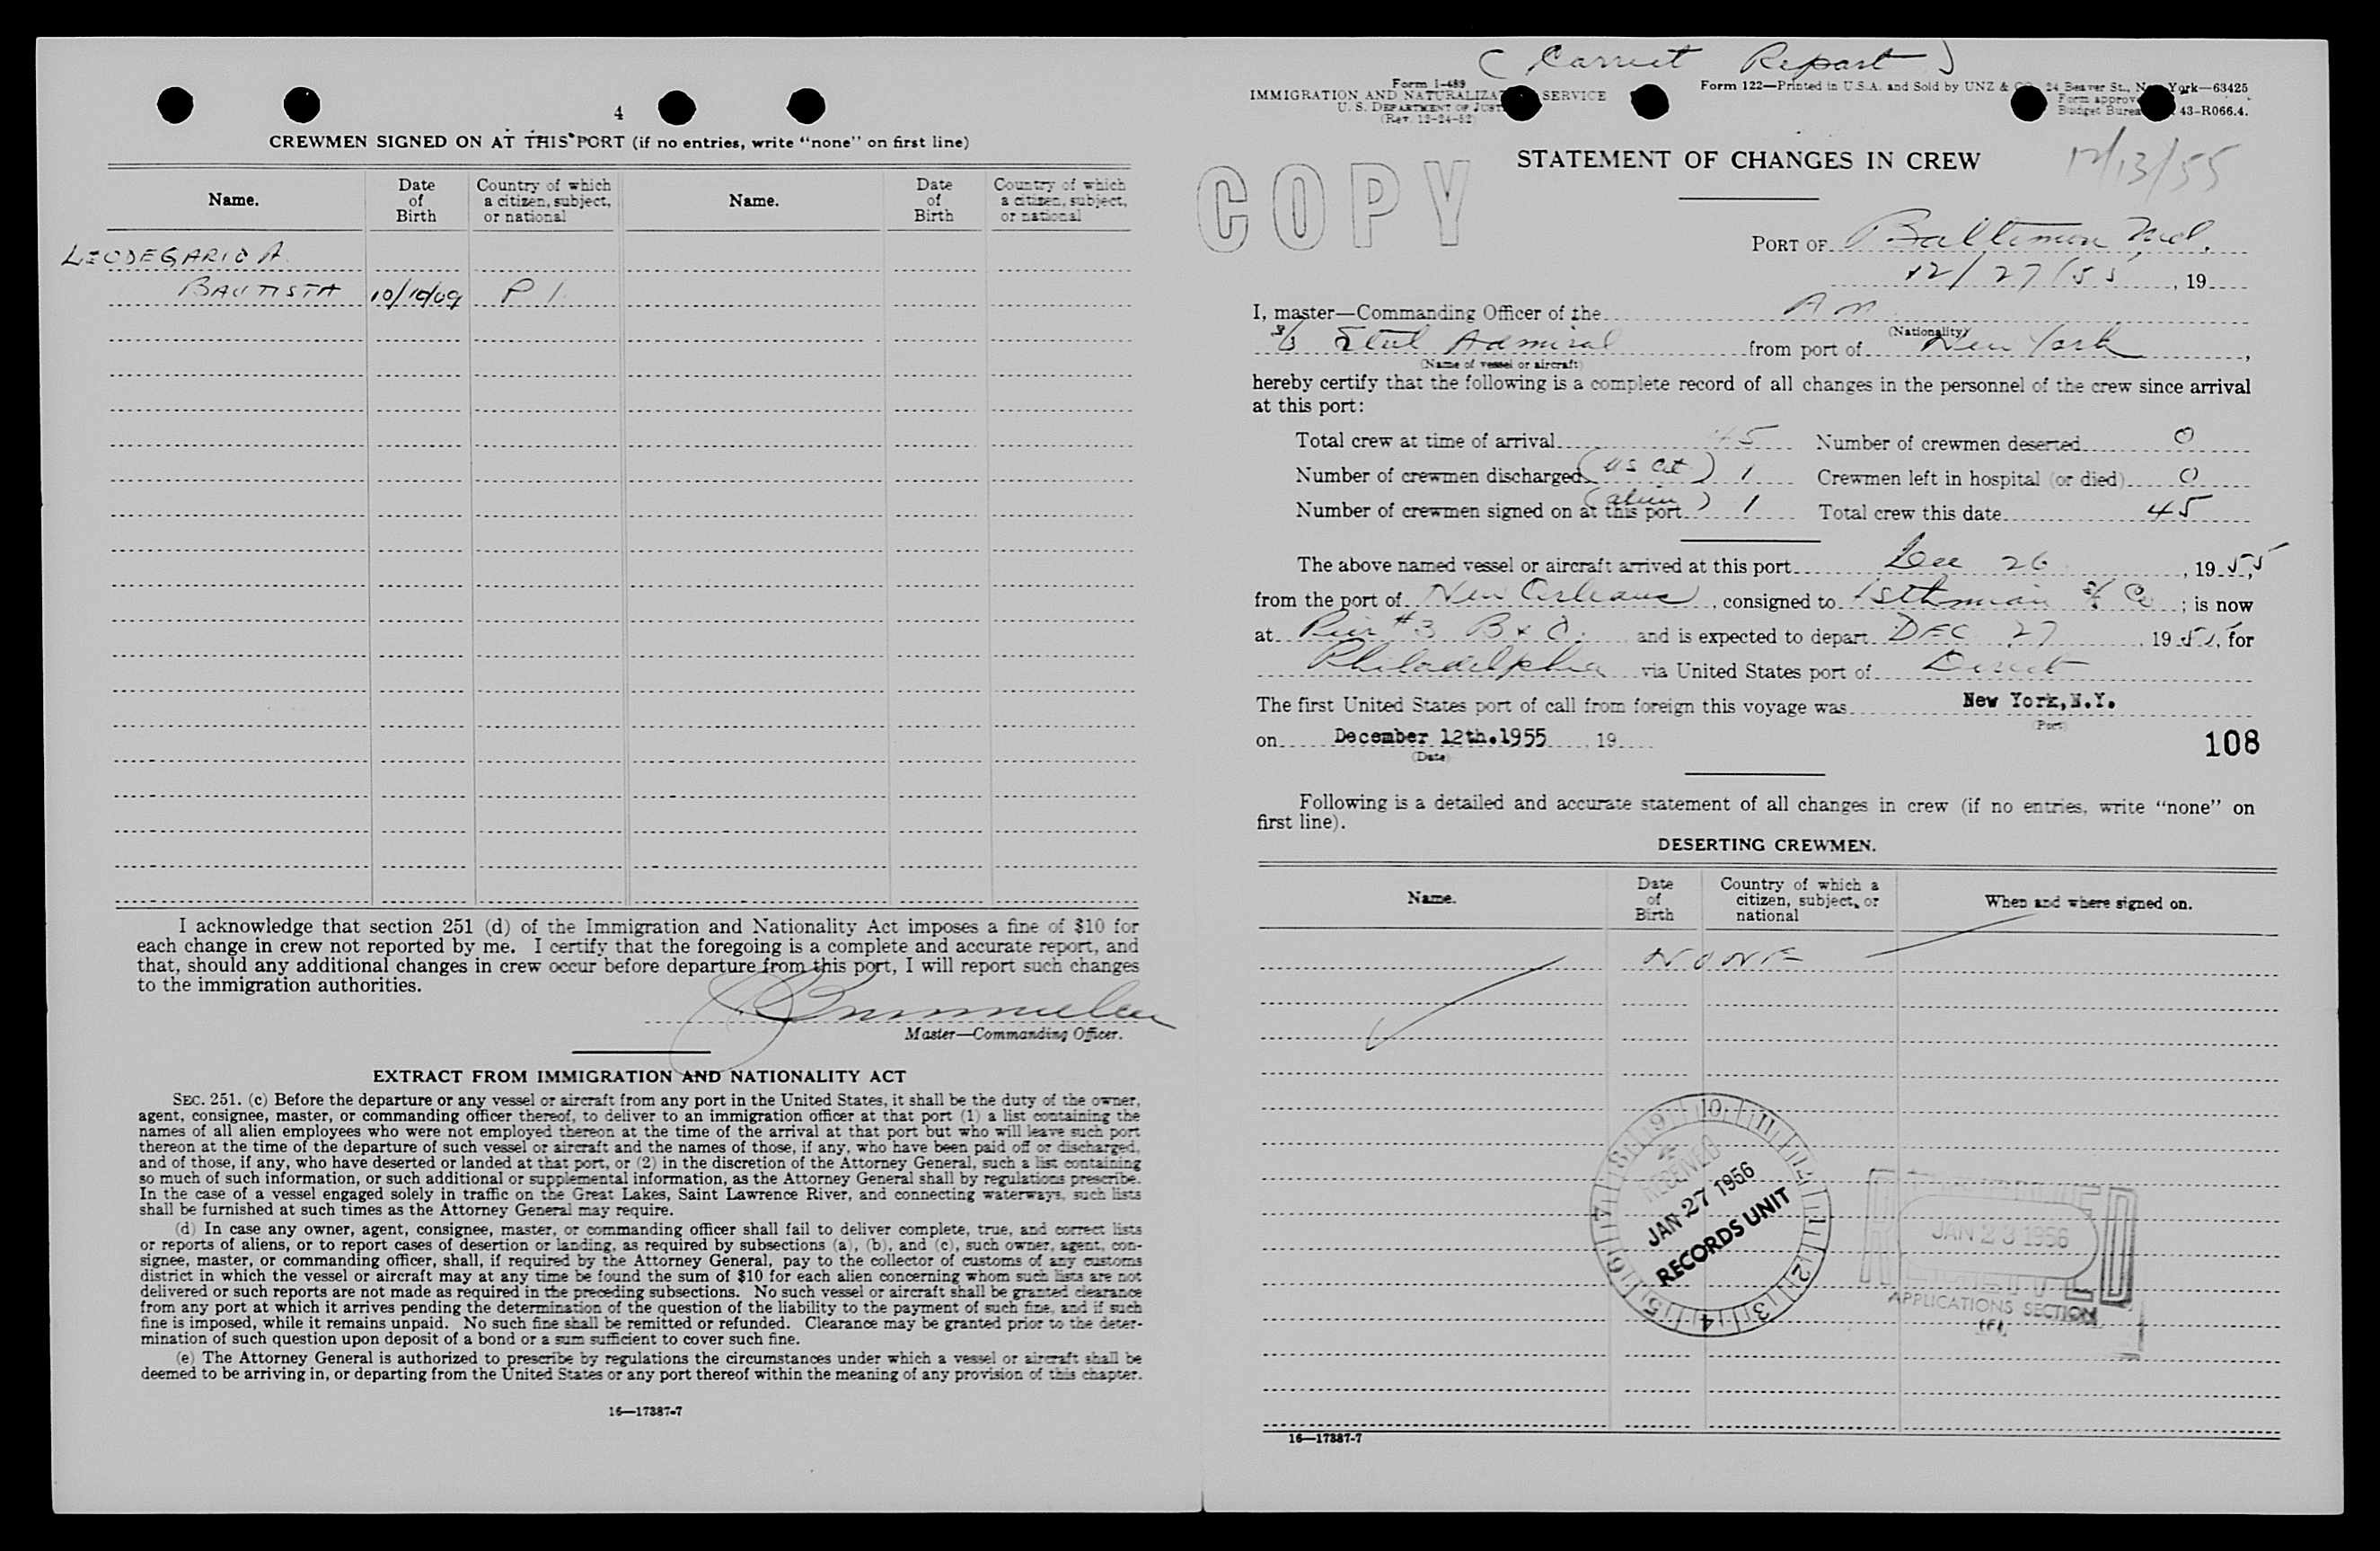 4
CREWMEN SIGNED ON AT THIS PORT (if no entries, write "none" on first line)
Name.
Date of Birth
Country of which a citizen, subject, or national
Name.
Date of Birth
Country of which a citizen, subject, or national
LEODEGARIO A.
BAUTISTA 10/10/09 P I
I acknowledge that section 251 (d) of the Immigration and Nationality Act imposes a fine of $10 for
each change in crew not reported by me. I certify that the foregoing is a complete and accurate report, and
that, should any additional changes in crew occur before departure from this port, I will report such changes
to the immigration authorities.
Master—Commanding Officer.
EXTRACT FROM IMMIGRATION AND NATIONALITY ACT
SEC. 251. (c) Before the departure or any vessel or aircraft from any port in the United States, it shall be the duty of the owner,
agent, consignee, master, or commanding officer thereof, to deliver to an immigration officer at that port (1) a list containing the
names of all alien employees who were not employed thereon at the time of the arrival at that port but who will leave such port
thereon at the time of the departure of such vessel or aircraft and the names of those, if any, who have been paid off or discharged,
and of those, if any, who have deserted or landed at that port, or (2) in the discretion of the Attorney General, such a list containing
so much of such information, or such additional or supplemental information, as the Attorney General shall by regulations prescribe.
In the case of a vessel engaged solely in traffic on the Great Lakes, Saint Lawrence River, and connecting waterways, such lists
shall be furnished at such times as the Attorney General may require.
(d) In case any owner, agent, consignee, master, or commanding officer shall fail to deliver complete, true, and correct lists
or reports of aliens, or to report cases of desertion or landing, as required by subsections (a), (b), and (c), such owner, agent, con-
signee, master, or commanding officer, shall, if required by the Attorney General, pay to the collector of customs of any customs
district in which the vessel or aircraft may at any time be found the sum of $10 for each alien concerning whom such lists are not
delivered or such reports are not made as required in the preceding subsections. No such vessel or aircraft shall be granted clearance
from any port at which it arrives pending the determination of the question of the liability to the payment of such fine, and if such
fine is imposed, while it remains unpaid. No such fine shall be remitted or refunded. Clearance may be granted prior to the deter-
mination of such question upon deposit of a bond or a sum sufficient to cover such fine.
(e) The Attorney General is authorized to prescribe by regulations the circumstances under which a vessel or aircraft shall be
deemed to be arriving in, or departing from the United States or any port thereof within the meaning of any provision of this chapter.
16—17387-7
(Correct Report)
Form I-489
IMMIGRATION AND NATURALIZA SERVICE
U. S. DEPARTMENT OF JUST
(Rev. 12-24-52)
Form 122—Printed in U.S.A. and Sold by UNZ & 24 Beaver St., New York—63425
Form approv
Budget Bureau 43-R066.4.
COPY
STATEMENT OF CHANGES IN CREW
12/13/55
PORT OF Baltimore Md.
12/27/55, 19
I, master—Commanding Officer of the Am
(Nationality)
S/S Steel Admiral from port of New York,
(Name of vessel or aircraft)
hereby certify that the following is a complete record of all changes in the personnel of the crew since arrival
at this port:
Total crew at time of arrival 45 Number of crewmen deserted 0
Number of crewmen discharged (US Cit) 1 Crewmen left in hospital (or died) 0
Number of crewmen signed on at this port (alien) 1 Total crew this date 45
The above named vessel or aircraft arrived at this port Dec 26, 1955
from the port of New Orleans, consigned to Isthmian S/S Co; is now
at Pier #3 B & O. and is expected to depart DEC 27, 1955, for
Philadelphia via United States port of Direct
The first United States port of call from foreign this voyage was New York,N.Y.
(Port)
on December 12th.1955, 19
(Date)
108
Following is a detailed and accurate statement of all changes in crew (if no entries, write "none" on
first line).
DESERTING CREWMEN.
Name.
Date of Birth
Country of which a citizen, subject, or national
When and where signed on.
NONE
9 10 11 12 1 2 3 4 5 6 7 8
RECEIVED
JAN 27 1956
RECORDS UNIT
JAN 23 1956
APPLICATIONS SECTION
16—17387-7